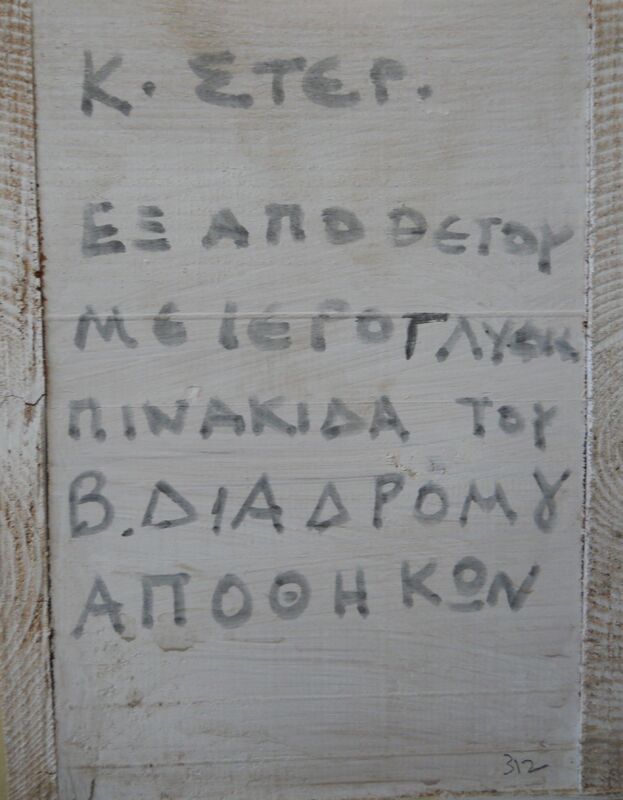 Κ. ΣΤΕΡ.
ΕΞ ΑΠΟΘΕΤΟΥ
ΜΕ ΙΕΡΟΓΛΥΦΙΚ
ΠΙΝΑΚΙΔΑ ΤΟΥ
Β. ΔΙΑΔΡΟΜΟΥ
ΑΠΟΘΗΚΩΝ
312